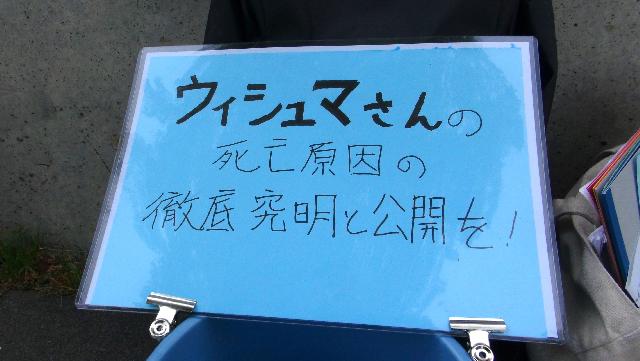 ウィシュマさんの
死亡原因の
徹底究明と公開を!